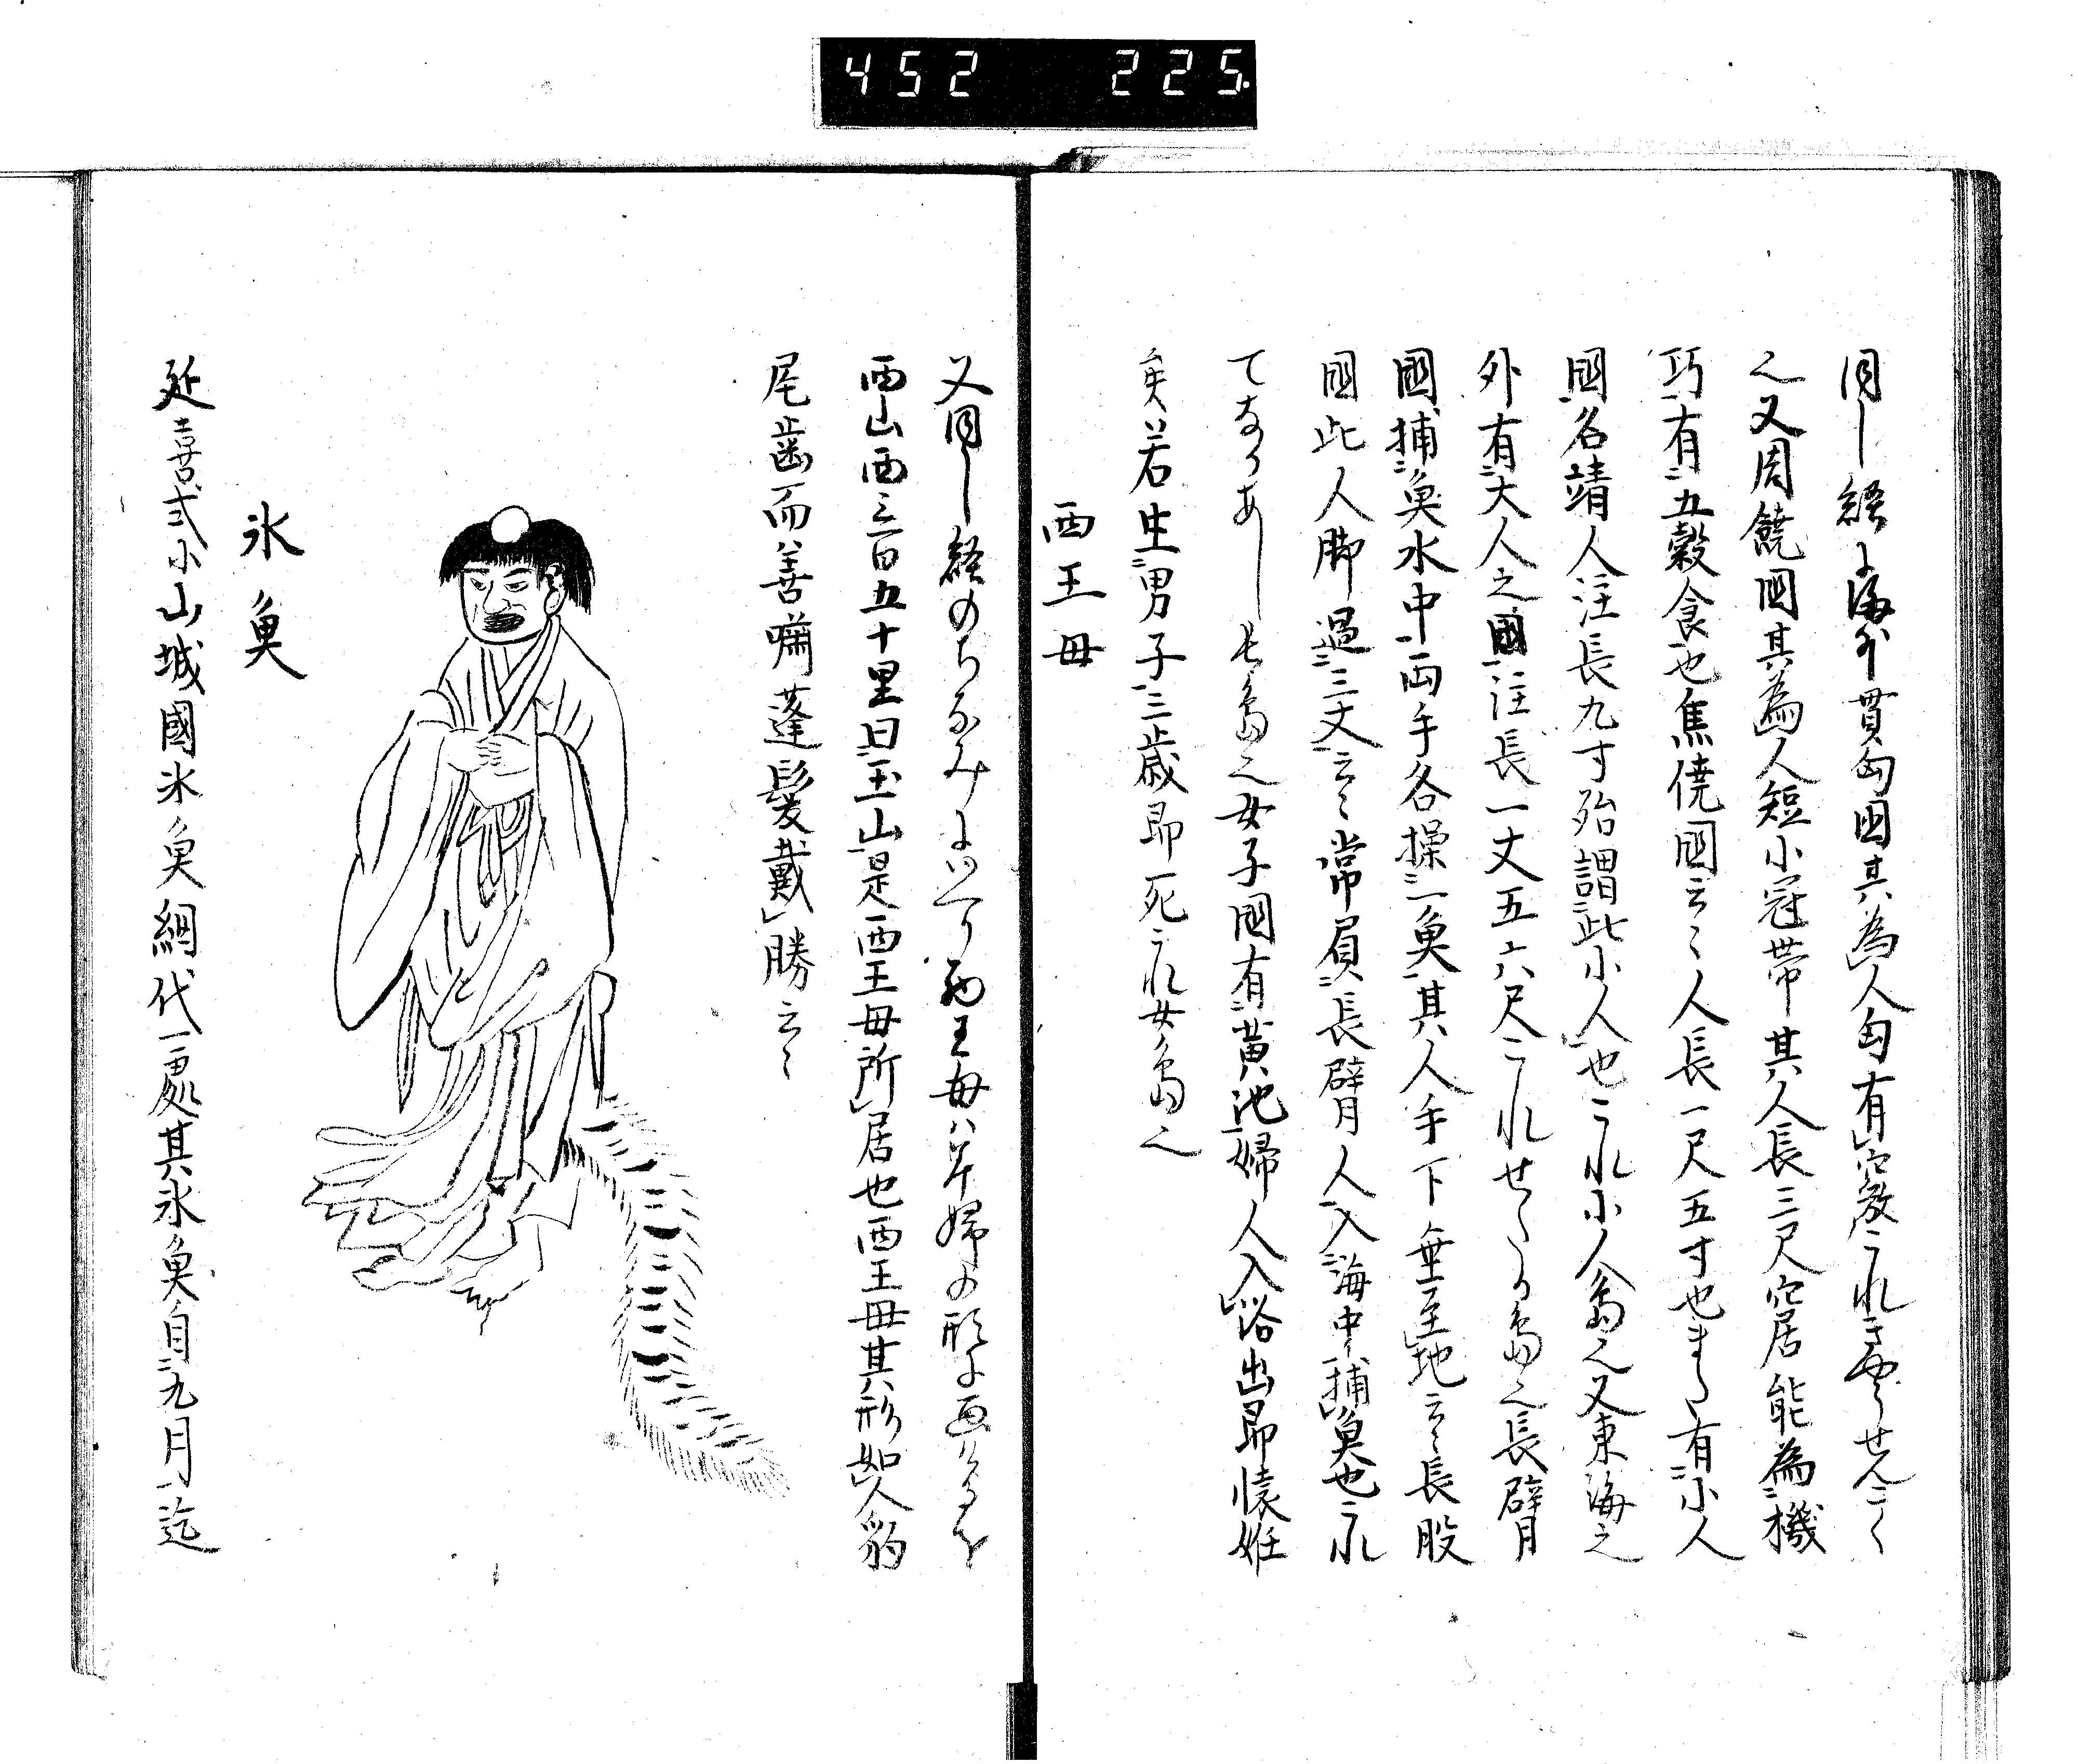 452 225
同し経に海外貫匈国其為人匈有竅これ
之又周饒国其為人短小冠帯其人長三尺穴居能為機
巧有五穀食也焦僥国云々人長一尺五寸也また有小人
国名靖人注長九寸殆謂此小人也これ小人島之又東海之
外有大人之国注長一丈五六尺これせたか島之長臂
国捕魚水中両手各操一魚其人手下垂至地云々長股
国此人脚過三丈云々常負長臂人入海中捕魚也これ
てなかあし長島之女子国有黄池婦人入浴出即懐妊
矣若生男子三歳即死これ女島之
西王母
又同し経のちなみにいへり西王母は 婦の形に画けるを
西山西三百五十里曰玉山是西王母所居也西王母其形如人豹
尾歯而善嘯蓬髪戴勝云々
氷魚
延喜式小山城國氷魚網代一處其氷魚自九月迄